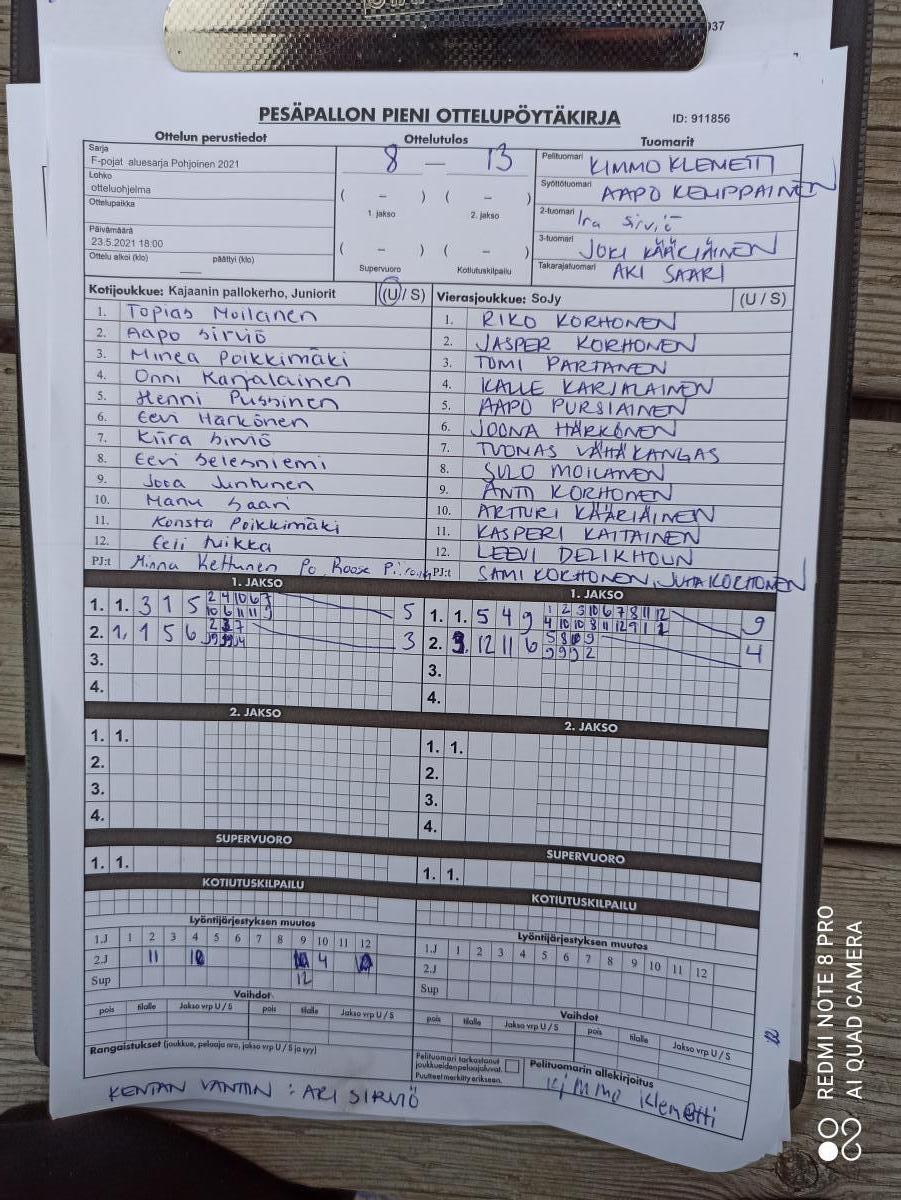 937
PESÄPALLON PIENI OTTELUPÖYTÄKIRJA ID: 911856
Ottelun perustiedot Ottelutulos Tuomarit
Sarja
F-pojat aluesarja Pohjoinen 2021
Lohko
otteluohjelma
Ottelupaikka
Päivämäärä
23.5.2021 18:00
Ottelu alkoi (klo) päättyi (klo)
8 — 13
( – ) ( – )
1. jakso 2. jakso
( – ) ( – )
Supervuoro Kotiutuskilpailu
Pelituomari KIMMO KLEMETTI
Syöttötuomari AAPO KEMPPAINEN
2-tuomari Ira Sirviö
3-tuomari JOKI KÄÄRIÄINEN
Takarajatuomari AKI SAARI
Kotijoukkue: Kajaanin pallokerho, Juniorit (U / S)
1. Topias Moilanen
2. Aapo Sirviö
3. Minea Poikkimäki
4. Onni Karjalainen
5. Henni Pussinen
6. Eevi Härkönen
7. Kiira Sirviö
8. Eevi Selesniemi
9. Joca Juntunen
10. Manu Saari
11. Konsta Poikkimäki
12. Eeli Mikka
PJ:t Minna Kettunen
Vierasjoukkue: SoJy (U / S)
1. RIKO KORHONEN
2. JASPER KORHONEN
3. TOMI PARTANEN
4. KALLE KARJALAINEN
5. AAPO PURSIAINEN
6. JOONA HÄRKÖNEN
7. TUOMAS VÄHÄKANGAS
8. SULO MOILANEN
9. ANTTI KORHONEN
10. ARTTURI KÄÄRIÄINEN
11. KASPERI KAITAINEN
12. LEEVI DELIKHOUN
PJ:t SAMI KORHONEN, JUHA KORHONEN
1. JAKSO
1. 1. 3 1 5 2 4 10 6 7 5
10 6 11 11 9
2. 1, 1 5 6 3
3.
4.
1. JAKSO
1. 1. 5 4 9 1 2 3 10 6 7 8 11 12 9
4 10 10 8 11 12 9 1 2
2. 3. 12 11 6 5 8 10 9 4
9 9 9 2
3.
4.
2. JAKSO
1. 1.
2.
3.
4.
2. JAKSO
1. 1.
2.
3.
4.
SUPERVUORO
1. 1.
SUPERVUORO
1. 1.
KOTIUTUSKILPAILU
KOTIUTUSKILPAILU
Lyöntijärjestyksen muutos
1.J 1 2 3 4 5 6 7 8 9 10 11 12
2.J 11 10 4
Sup 12
Lyöntijärjestyksen muutos
1.J 1 2 3 4 5 6 7 8 9 10 11 12
2.J
Sup
Vaihdot
pois tilalle Jakso vrp U / S pois tilalle Jakso vrp U / S
Vaihdot
pois tilalle Jakso vrp U / S pois tilalle Jakso vrp U / S
Rangaistukset (joukkue, pelaaja nro, jakso vrp U / S ja syy)
Pelituomari tarkastanut
joukkueidenpelaajaluvat.
Puutteet merkitty erikseen.
Pelituomarin allekirjoitus
Kimmo Klemetti
KENTÄN VANTIN : ARI SIRVIÖ
REDMI NOTE 8 PRO
AI QUAD CAMERA